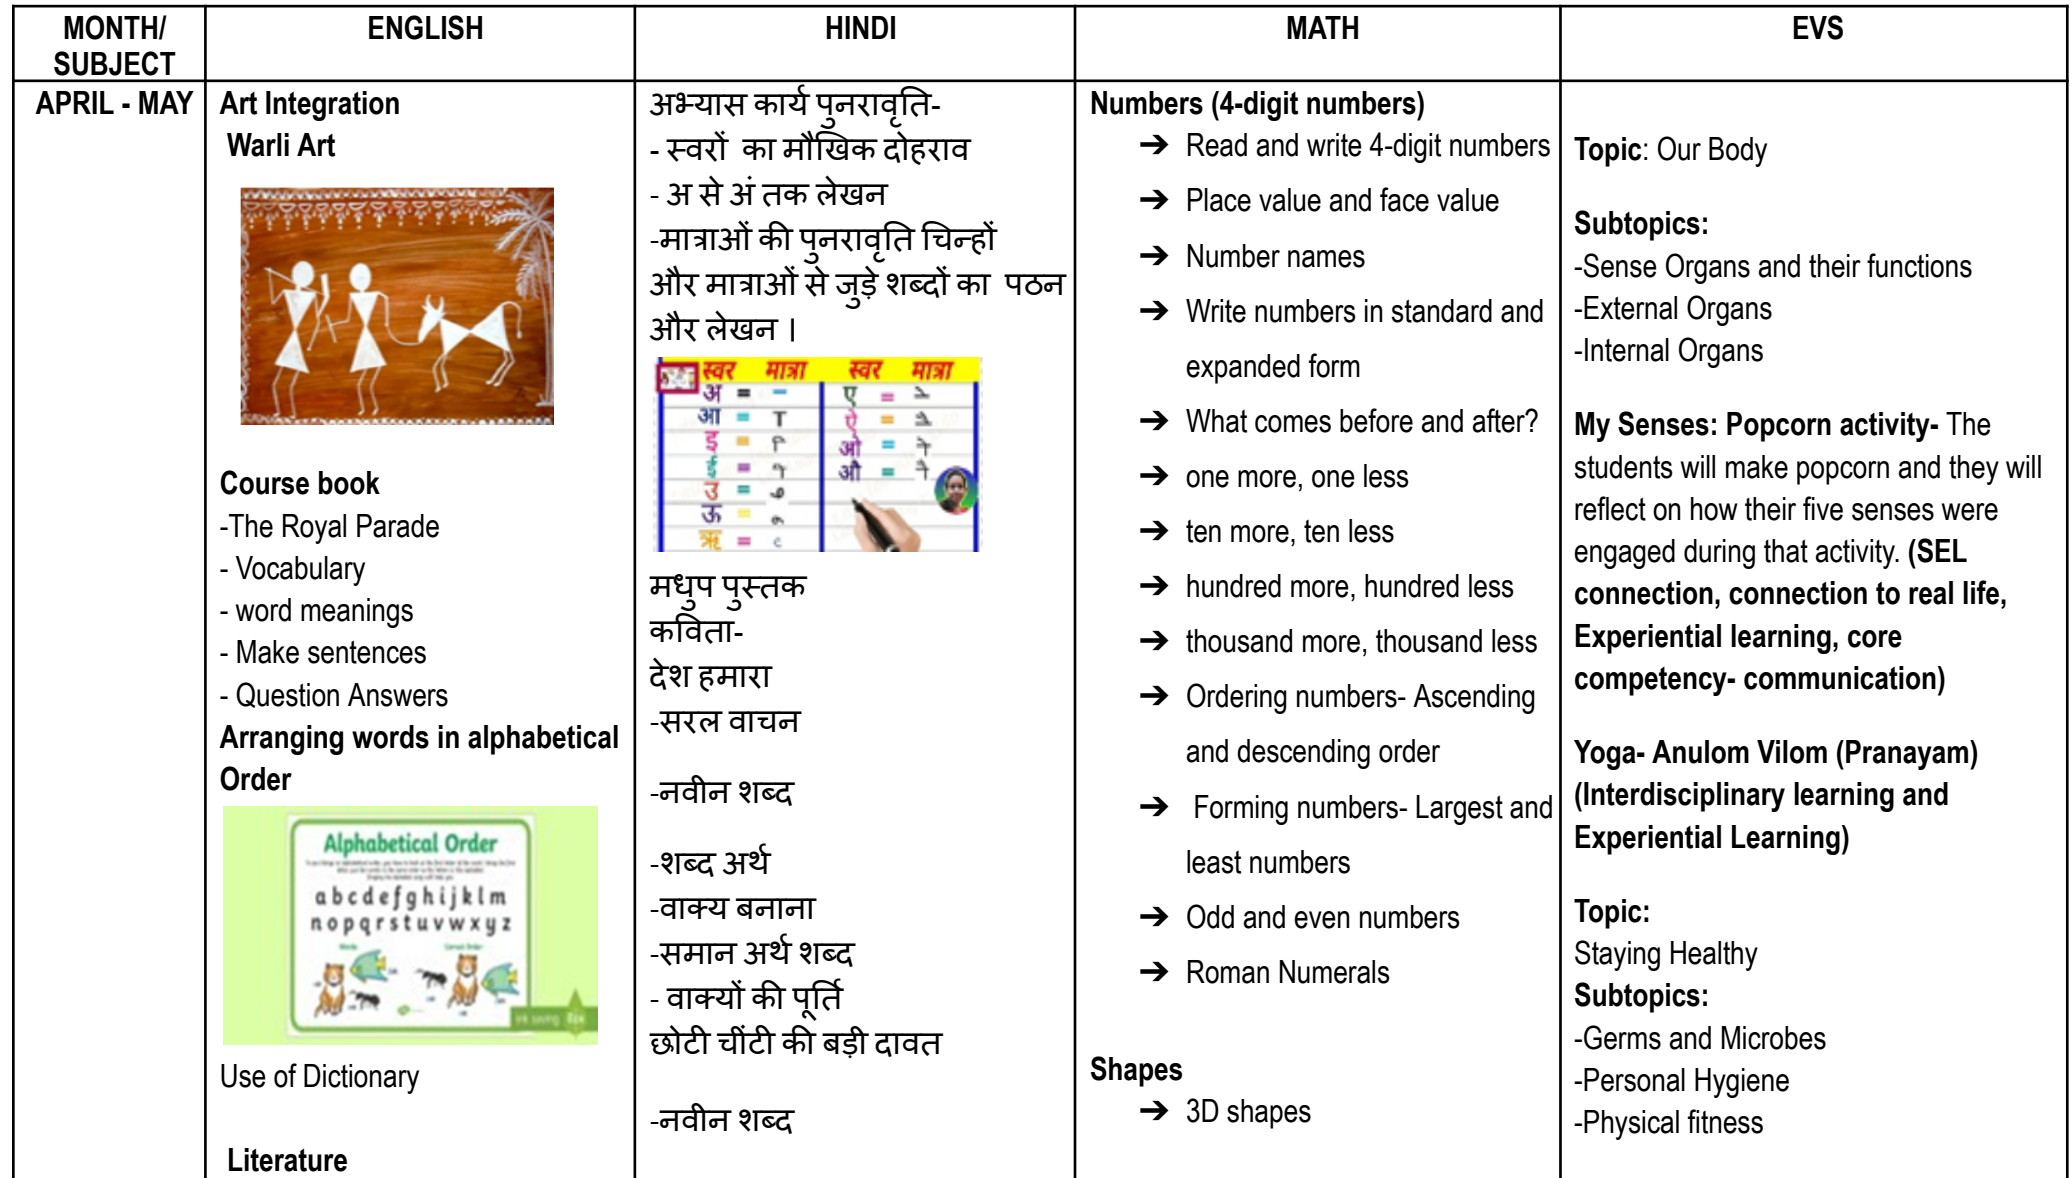 MONTH/
SUBJECT
ENGLISH
HINDI
MATH
EVS
APRIL - MAY
Art Integration
Warli Art
Course book
-The Royal Parade
- Vocabulary
- word meanings
- Make sentences
- Question Answers
Arranging words in alphabetical
Order
Alphabetical Order
a b c d e f g h i j k l m
n o p q r s t u v w x y z
Use of Dictionary
Literature
अभ्यास कार्य पुनरावृति-
- स्वरों का मौखिक दोहराव
- अ से अं तक लेखन
-मात्राओं की पुनरावृति चिन्हों
और मात्राओं से जुड़े शब्दों का पठन
और लेखन ।
स्वर मात्रा स्वर मात्रा
अ = - ए = े
आ = ा ऐ = ै
इ = ि ओ = ो
ई = ी औ = ौ
उ = ु
ऊ = ू
ऋ = ृ
मधुप पुस्तक
कविता-
देश हमारा
-सरल वाचन
-नवीन शब्द
-शब्द अर्थ
-वाक्य बनाना
-समान अर्थ शब्द
- वाक्यों की पूर्ति
छोटी चींटी की बड़ी दावत
-नवीन शब्द
Numbers (4-digit numbers)
➔ Read and write 4-digit numbers
➔ Place value and face value
➔ Number names
➔ Write numbers in standard and
expanded form
➔ What comes before and after?
➔ one more, one less
➔ ten more, ten less
➔ hundred more, hundred less
➔ thousand more, thousand less
➔ Ordering numbers- Ascending
and descending order
➔ Forming numbers- Largest and
least numbers
➔ Odd and even numbers
➔ Roman Numerals
Shapes
➔ 3D shapes
Topic: Our Body
Subtopics:
-Sense Organs and their functions
-External Organs
-Internal Organs
My Senses: Popcorn activity- The
students will make popcorn and they will
reflect on how their five senses were
engaged during that activity. (SEL
connection, connection to real life,
Experiential learning, core
competency- communication)
Yoga- Anulom Vilom (Pranayam)
(Interdisciplinary learning and
Experiential Learning)
Topic:
Staying Healthy
Subtopics:
-Germs and Microbes
-Personal Hygiene
-Physical fitness